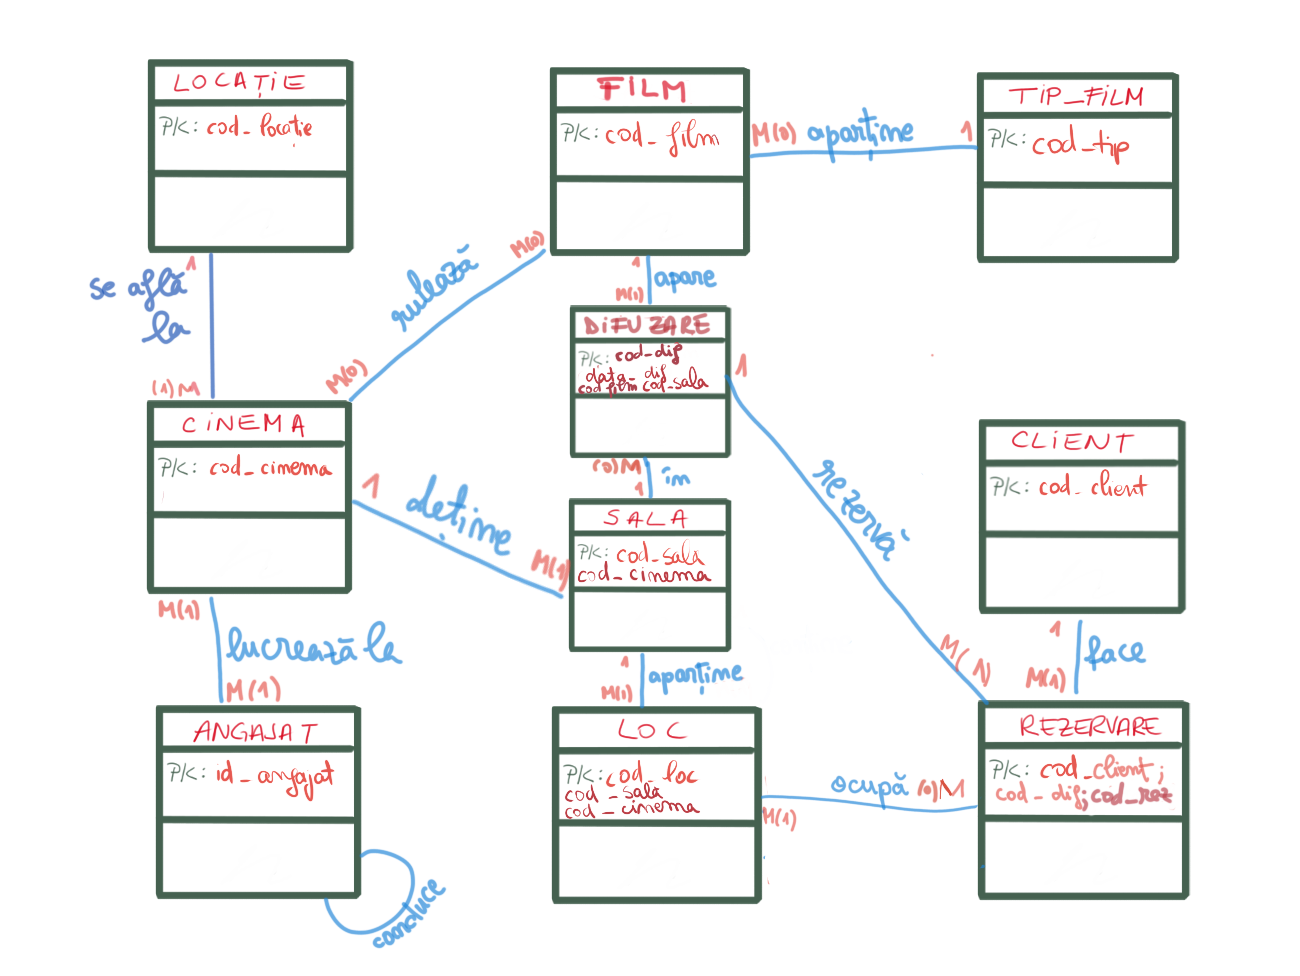 LOCAȚIE
P/K: cod_locatie
FILM
P/K: cod_film
M(0) aparține 1
TIP_FILM
P/K: cod_tip
1
se află
la
(1)M
rulează
M(0)
M(0)
1
apare
M(1)
DIFUZARE
P/K: cod_dif
data_dif
cod_film cod_sala
1
(0)M
în
1
CINEMA
P/K: cod_cinema
1 deține M(1)
SALA
P/K: cod_sala
cod_cinema
rezervă
M(1)
CLIENT
P/K: cod_client
1
face
M(1)
M(1)
lucrează la
M(1)
1
aparține
M(1)
ANGAJAT
P/K: id_angajat
conduce
LOC
P/K: cod_loc
cod_sala
cod_cinema
M(1)
ocupă (0)M
REZERVARE
P/K: cod_client;
cod_dif; cod_rez